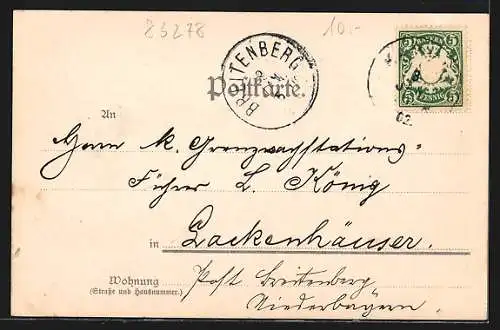 83278 10.-
BAYERN
5 5
PFENNIG
BREITENBERG
02
Postkarte.
An
Herrn k. Grenzwachstations-
Führer L. König
in Lackenhäuser.
Wohnung
(Straße und Hausnummer.)
Post Breitenberg
Niederbayern.